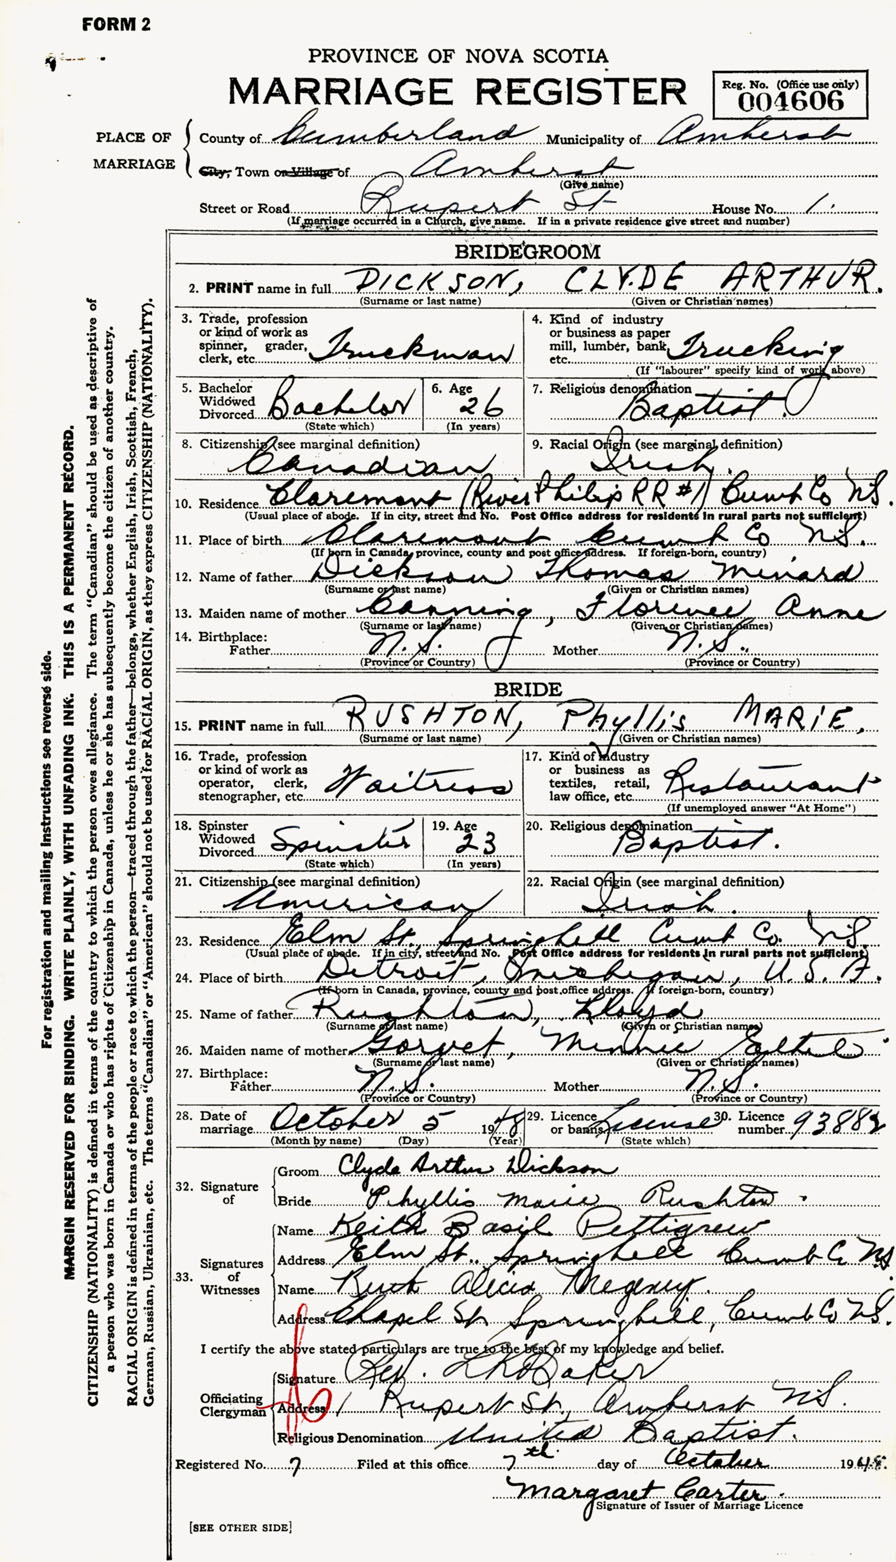 FORM 2
PROVINCE OF NOVA SCOTIA
MARRIAGE REGISTER
Reg. No. (Office use only)
004606
PLACE OF MARRIAGE
County of Cumberland Municipality of Amherst
City, Town or Village of Amherst
(Give name)
Street or Road Rupert St House No. 1.
(If marriage occurred in a Church, give name. If in a private residence give street and number)
BRIDEGROOM
2. PRINT name in full DICKSON, CLYDE ARTHUR.
(Surname or last name) (Given or Christian names)
3. Trade, profession or kind of work as spinner, grader, clerk, etc. Truckman
4. Kind of industry or business as paper mill, lumber, bank, etc. Trucking
(If "labourer" specify kind of work above)
5. Bachelor Widowed Divorced Bachelor
(State which)
6. Age 26
(In years)
7. Religious denomination Baptist.
8. Citizenship (see marginal definition) Canadian
9. Racial Origin (see marginal definition) Irish.
10. Residence Claremont (River Philip RR #1) Cumb Co NS.
(Usual place of abode. If in city, street and No. Post Office address for residents in rural parts not sufficient)
11. Place of birth Claremont Cumb Co NS.
(If born in Canada, province, county and post office address. If foreign-born, country)
12. Name of father Dickson Thomas Minard
(Surname or last name) (Given or Christian names)
13. Maiden name of mother Canning, Florence Anne
(Surname or last name) (Given or Christian names)
14. Birthplace: Father N.S. Mother N.S.
(Province or Country) (Province or Country)
BRIDE
15. PRINT name in full RUSHTON, Phyllis MARIE.
(Surname or last name) (Given or Christian names)
16. Trade, profession or kind of work as operator, clerk, stenographer, etc. Waitress
17. Kind of industry or business as textiles, retail, law office, etc. Restaurant
(If unemployed answer "At Home")
18. Spinster Widowed Divorced Spinster
(State which)
19. Age 23
(In years)
20. Religious denomination Baptist.
21. Citizenship (see marginal definition) American
22. Racial Origin (see marginal definition) Irish.
23. Residence Elm St. Springhill Cumb Co. NS.
(Usual place of abode. If in city, street and No. Post Office address for residents in rural parts not sufficient)
24. Place of birth Detroit, Michigan, U.S.A.
(If born in Canada, province, county and post office address. If foreign-born, country)
25. Name of father Rushton, Lloyd
(Surname or last name) (Given or Christian names)
26. Maiden name of mother Minnie
(Surname or last name) (Given or Christian names)
27. Birthplace: Father N.S. Mother N.S.
(Province or Country) (Province or Country)
28. Date of marriage October 5 1948
(Month by name) (Day) (Year)
29. Licence or banns License
(State which)
30. Licence number 93882
32. Signature of
Groom Clyde Arthur Dickson
Bride Phyllis Marie Rushton.
33. Signatures of Witnesses
Name Keith Basil Pettigrew
Address Elm St., Springhill Cumb Co NS
Name Ruth Alicia
Address Chapel St Springhill, Cumb Co NS.
I certify the above stated particulars are true to the best of my knowledge and belief.
Officiating Clergyman
Signature Rev. Baker
Address 1 Rupert St, Amherst NS.
Religious Denomination United Baptist.
Registered No. 7 Filed at this office 7th day of October 1948.
Margaret Carter.
Signature of Issuer of Marriage Licence
[SEE OTHER SIDE]
For registration and mailing instructions see reverse side.
MARGIN RESERVED FOR BINDING. WRITE PLAINLY, WITH UNFADING INK. THIS IS A PERMANENT RECORD.
CITIZENSHIP (NATIONALITY) is defined in terms of the country to which the person owes allegiance. The term "Canadian" should be used as descriptive of
a person who was born in Canada or who has rights of Citizenship in Canada, unless he or she has subsequently become the citizen of another country.
RACIAL ORIGIN is defined in terms of the people or race to which the person—traced through the father—belongs, whether English, Irish, Scottish, French,
German, Russian, Ukrainian, etc. The terms "Canadian" or "American" should not be used for RACIAL ORIGIN, as they express CITIZENSHIP (NATIONALITY).